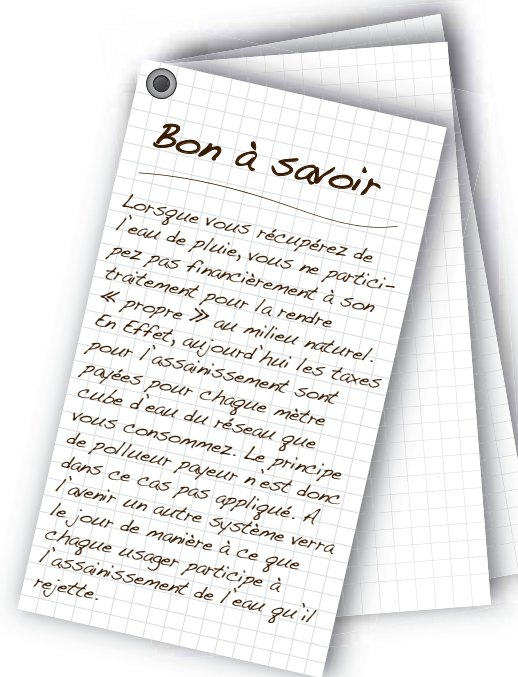 Bon à savoir
Lorsque vous récupérez de
l'eau de pluie, vous ne partici-
pez pas financièrement à son
traitement pour la rendre
« propre » au milieu naturel.
En Effet, aujourd'hui les taxes
pour l'assainissement sont
payées pour chaque mètre
cube d'eau du réseau que
vous consommez. Le principe
de pollueur payeur n'est donc
dans ce cas pas appliqué. A
l'avenir un autre système verra
le jour de manière à ce que
chaque usager participe à
l'assainissement de l'eau qu'il
rejette.